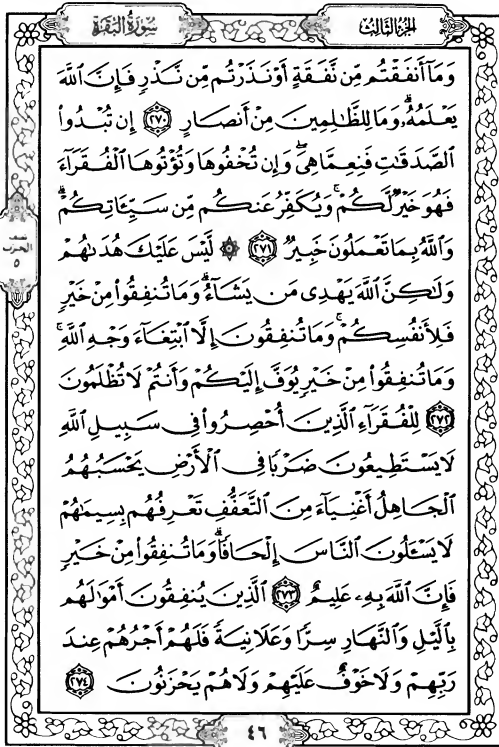 الجزء الثالث
سورة البقرة
وَمَآ أَنفَقْتُم مِّن نَّفَقَةٍ أَوْ نَذَرْتُم مِّن نَّذْرٍ فَإِنَّ ٱللَّهَ
يَعْلَمُهُۥ ۗ وَمَا لِلظَّٰلِمِينَ مِنْ أَنصَارٍ ﴿٢٧٠﴾ إِن تُبْدُوا۟
ٱلصَّدَقَٰتِ فَنِعِمَّا هِىَ ۖ وَإِن تُخْفُوهَا وَتُؤْتُوهَا ٱلْفُقَرَآءَ
فَهُوَ خَيْرٌ لَّكُمْ ۚ وَيُكَفِّرُ عَنكُم مِّن سَيِّـَٔاتِكُمْ ۗ
وَٱللَّهُ بِمَا تَعْمَلُونَ خَبِيرٌ ﴿٢٧١﴾ ۞ لَّيْسَ عَلَيْكَ هُدَىٰهُمْ
وَلَٰكِنَّ ٱللَّهَ يَهْدِى مَن يَشَآءُ ۗ وَمَا تُنفِقُوا۟ مِنْ خَيْرٍ
فَلِأَنفُسِكُمْ ۚ وَمَا تُنفِقُونَ إِلَّا ٱبْتِغَآءَ وَجْهِ ٱللَّهِ ۚ
وَمَا تُنفِقُوا۟ مِنْ خَيْرٍ يُوَفَّ إِلَيْكُمْ وَأَنتُمْ لَا تُظْلَمُونَ
﴿٢٧٢﴾ لِلْفُقَرَآءِ ٱلَّذِينَ أُحْصِرُوا۟ فِى سَبِيلِ ٱللَّهِ
لَا يَسْتَطِيعُونَ ضَرْبًا فِى ٱلْأَرْضِ يَحْسَبُهُمُ
ٱلْجَاهِلُ أَغْنِيَآءَ مِنَ ٱلتَّعَفُّفِ تَعْرِفُهُم بِسِيمَٰهُمْ
لَا يَسْـَٔلُونَ ٱلنَّاسَ إِلْحَافًا ۗ وَمَا تُنفِقُوا۟ مِنْ خَيْرٍ
فَإِنَّ ٱللَّهَ بِهِۦ عَلِيمٌ ﴿٢٧٣﴾ ٱلَّذِينَ يُنفِقُونَ أَمْوَٰلَهُم
بِٱلَّيْلِ وَٱلنَّهَارِ سِرًّا وَعَلَانِيَةً فَلَهُمْ أَجْرُهُمْ عِندَ
رَبِّهِمْ وَلَا خَوْفٌ عَلَيْهِمْ وَلَا هُمْ يَحْزَنُونَ ﴿٢٧٤﴾
نصف
الحزب
٥
٤٦